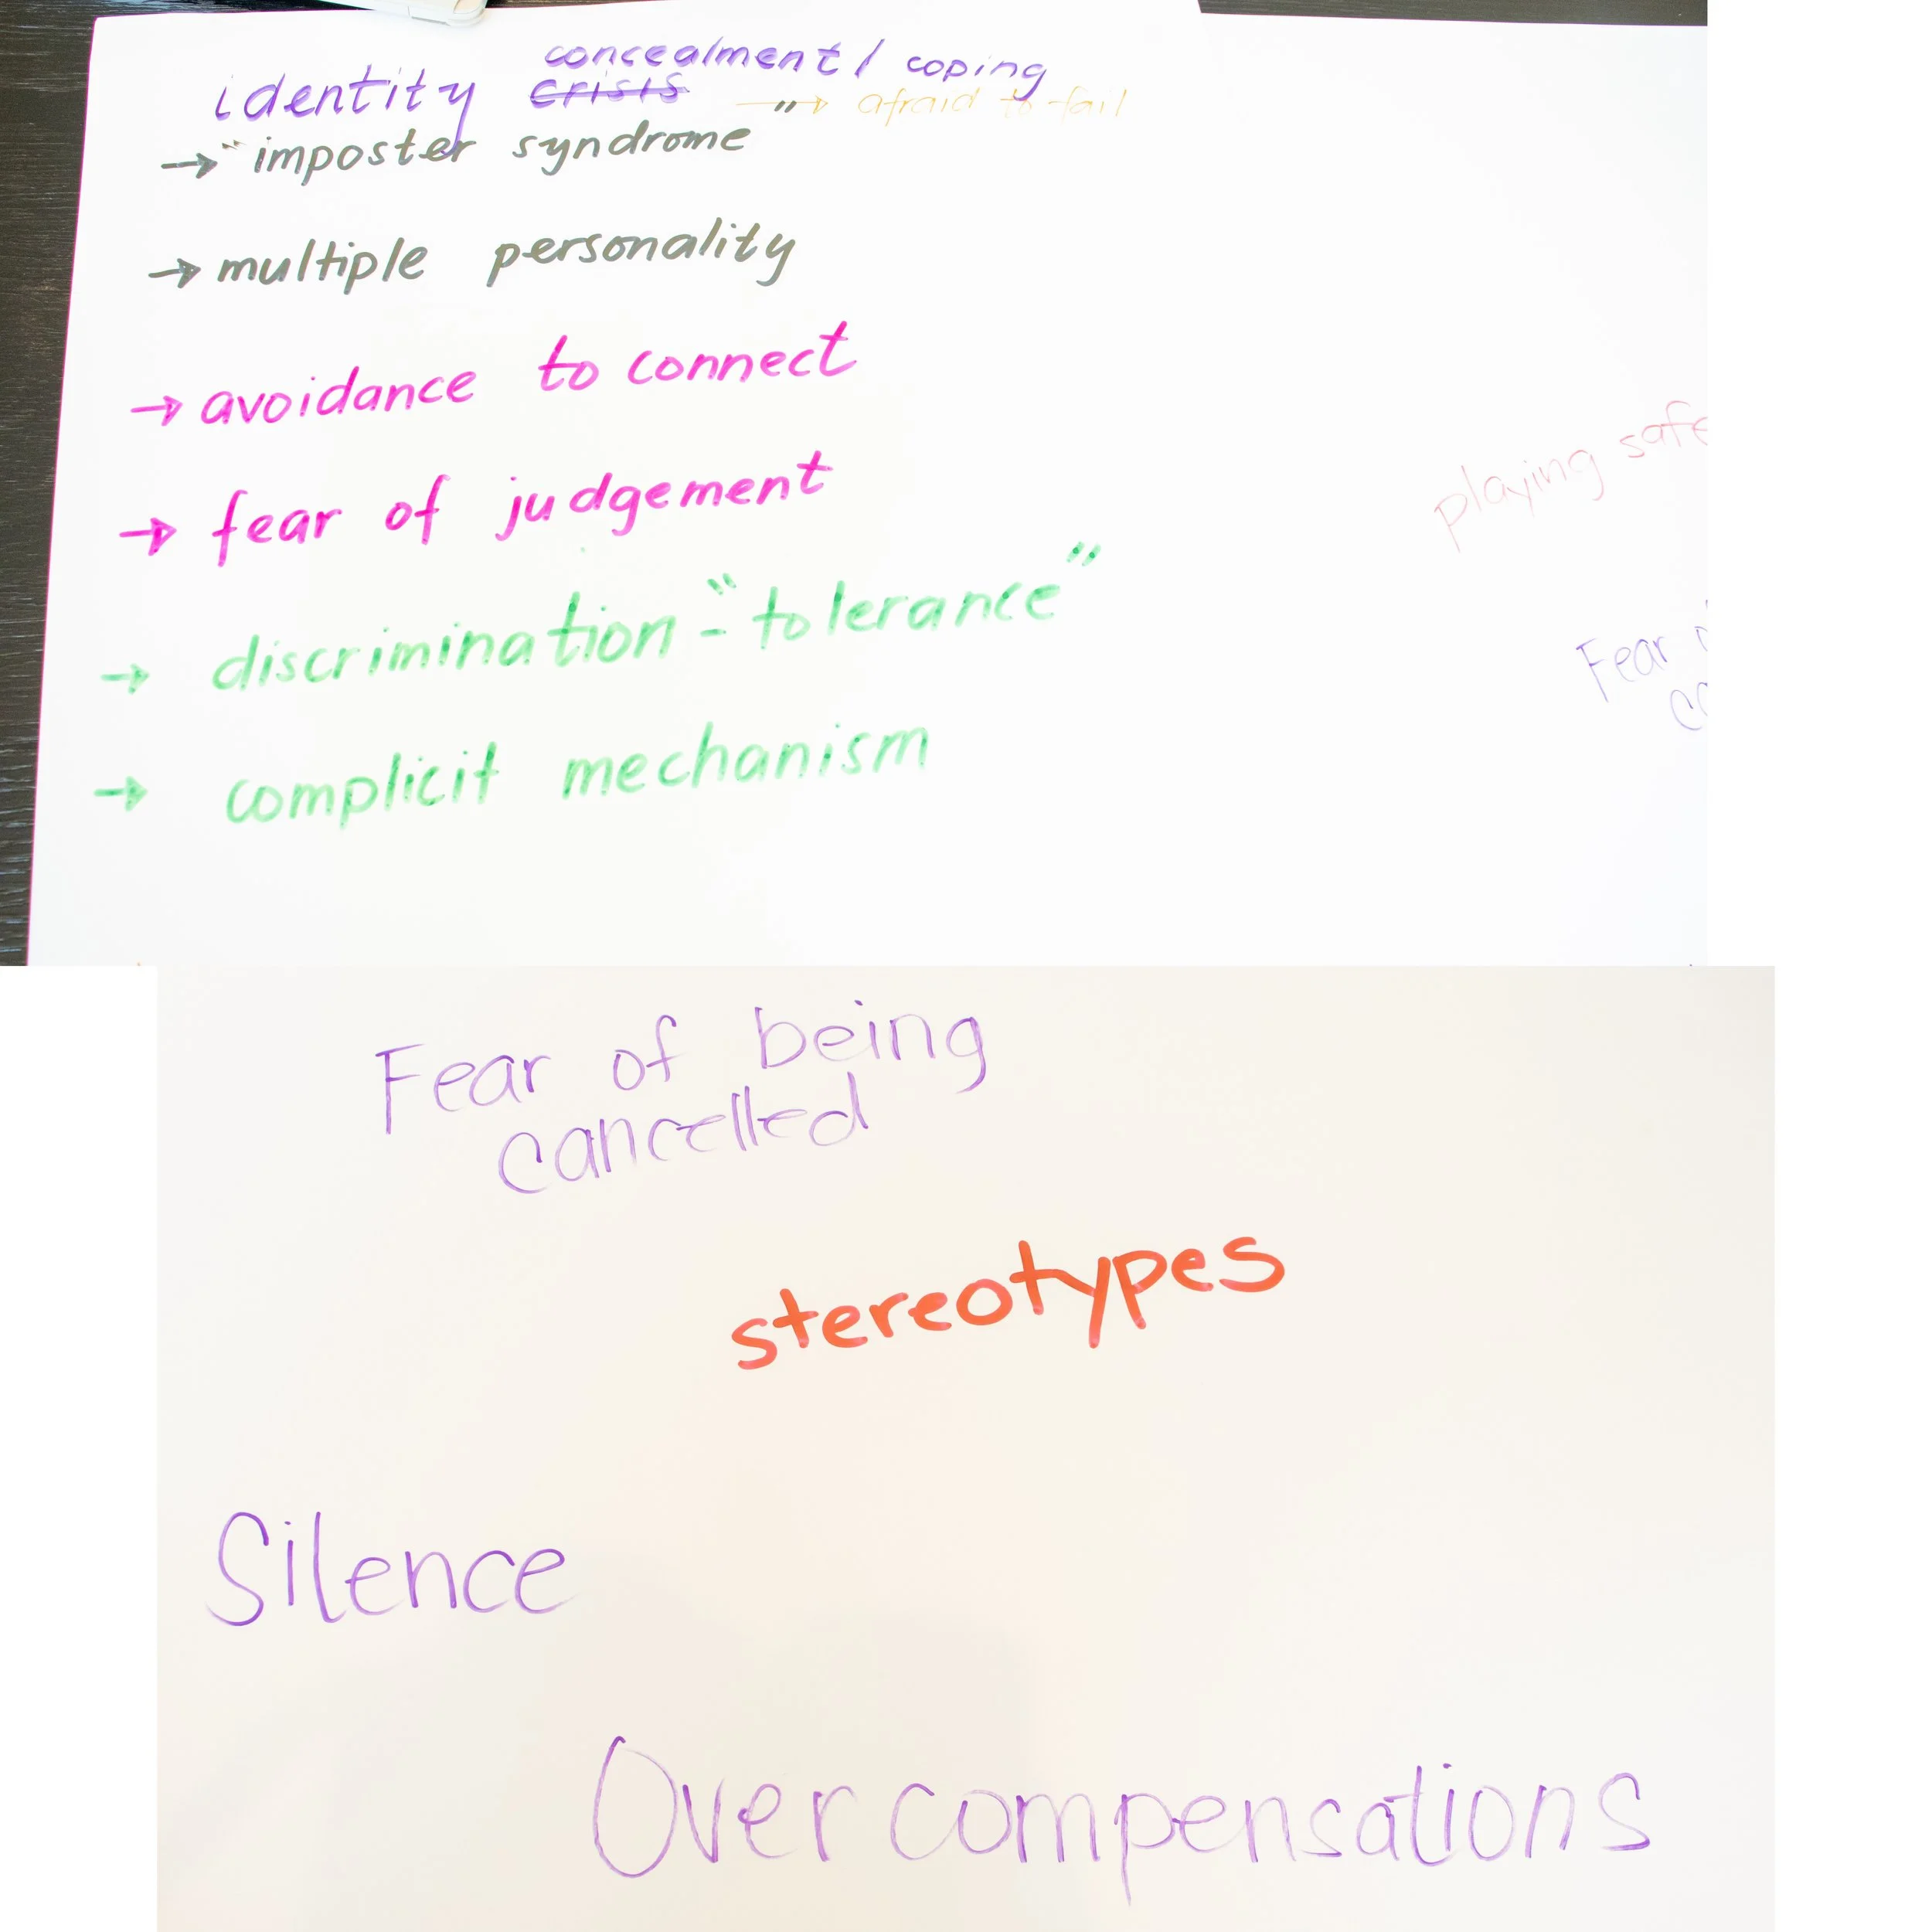 concealment / coping
identity crisis
→ afraid to fail
→ "imposter syndrome"
→ multiple personality
→ avoidance to connect
playing safe
→ fear of judgement
→ discrimination - "tolerance"
Fear
→ complicit mechanism
Fear of being
cancelled
stereotypes
Silence
Over compensations